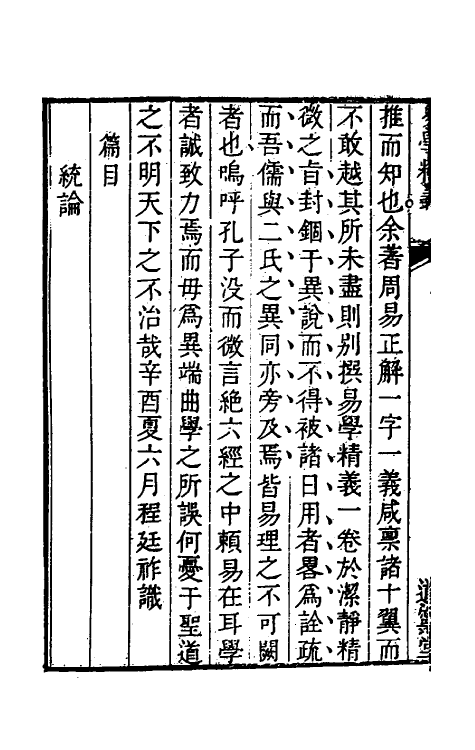 推而知也余著周易正解一字一義咸稟諸十翼而
不敢越其所未盡則别撰易學精義一卷於潔靜精
微之㫖封錮于異說而不得被諸日用者畧為詮疏
而吾儒與二氏之異同亦旁及焉皆易理之不可闕
者也嗚呼孔子没而微言絶六經之中頼易在耳學
者誠致力焉而毋為異端曲學之所誤何憂于聖道
之不明天下之不治哉辛酉夏六月程廷祚識
篇目
統論